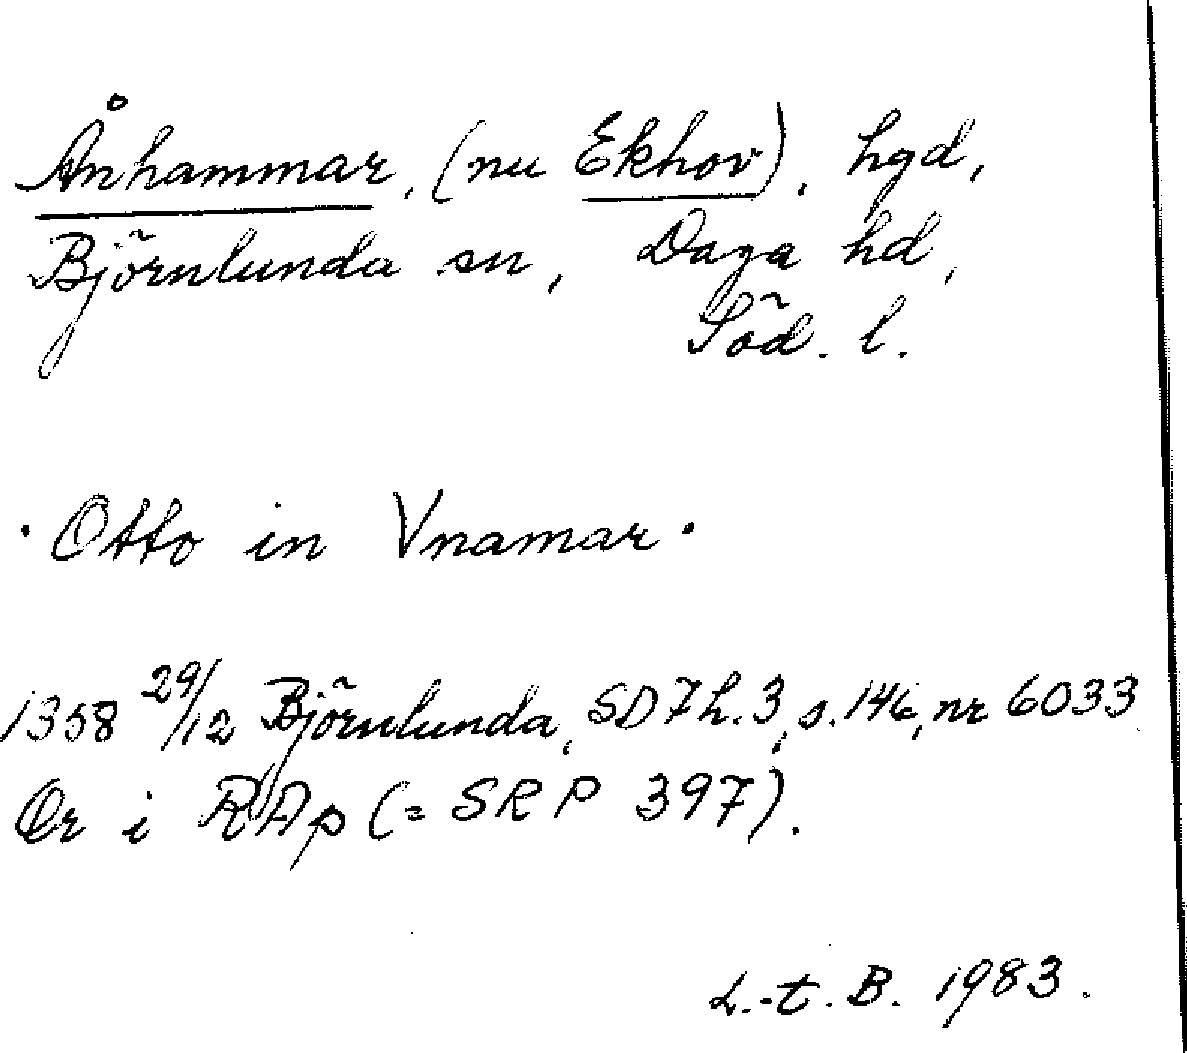 Ånhammar, (nu Ekhov). hgd,
Björnlunda sn, Daga hd,
Söd. l.
· Otto in Vnamar ·
1358 29/12 Björnlunda, SD 7 h. 3, s. 146, nr 6033
Or i RAp (= SRP 397).
L.-t. B. 1983.